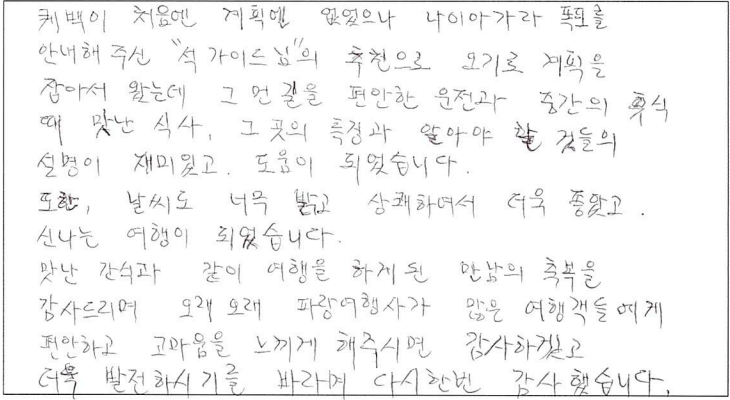 퀘백이 처음엔 계획엔 없었으나 나이아가라 폭포를
안내해 주신 "석 가이드님"의 추천으로 오기로 계획을
잡아서 왔는데 그 먼 길을 편안한 운전과 중간의 휴식
때 맛난 식사, 그 곳의 특징과 알아야 할 것들의
설명이 재미있고. 도움이 되었습니다.
또한, 날씨도 너무 밝고 상쾌하여서 더욱 좋았고.
신나는 여행이 되었습니다.
맛난 간식과 같이 여행을 하게된 만남의 축복을
감사드리며 오래오래 파랑여행사가 많은 여행객들에게
편안하고 고마움을 느끼게 해주시면 감사하겠고
더욱 발전하시기를 바라며 다시한번 감사했습니다.